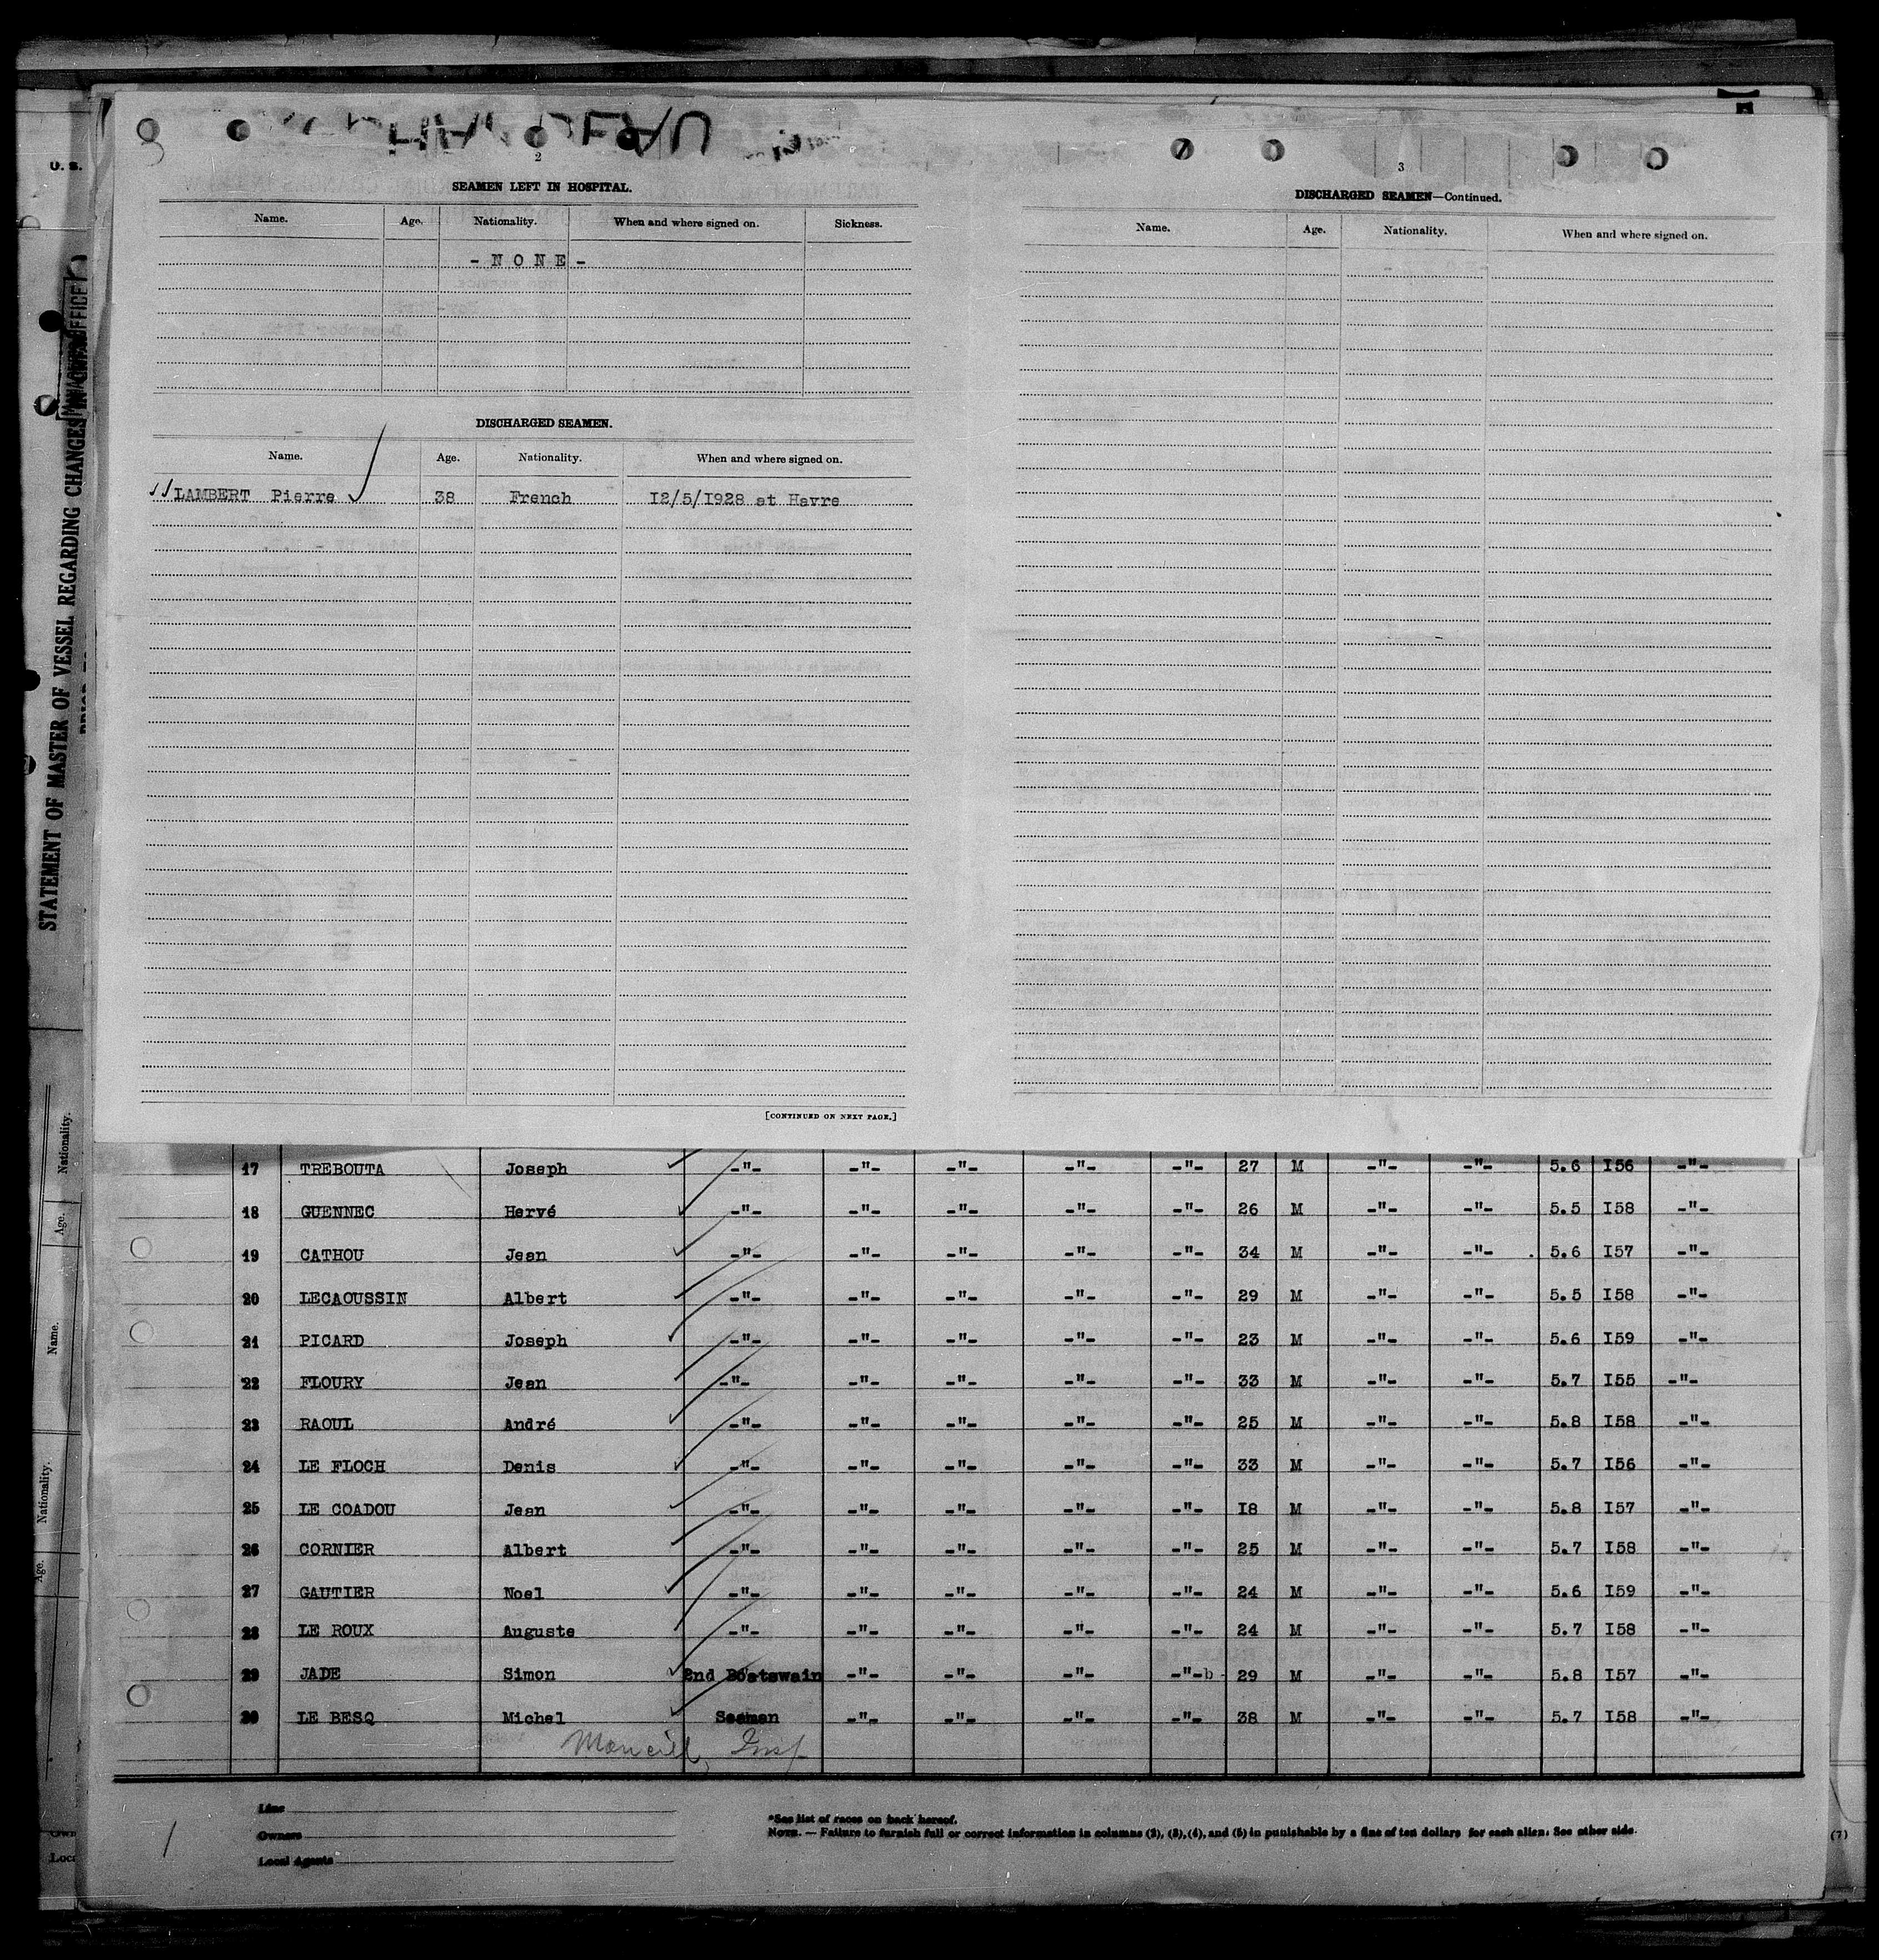 U. S.
STATEMENT OF MASTER OF VESSEL REGARDING CHANGES IN CREW
2
SEAMEN LEFT IN HOSPITAL.
Name. Age. Nationality. When and where signed on. Sickness.
- N O N E -
DISCHARGED SEAMEN.
Name. Age. Nationality. When and where signed on.
LAMBERT Pierre 38 French I2/5/I928 at Havre
[CONTINUED ON NEXT PAGE.]
3
DISCHARGED SEAMEN—Continued.
Name. Age. Nationality. When and where signed on.
Nationality.
Age.
Name.
Nationality.
Age.
17 TREBOUTA Joseph -"- -"- -"- -"- -"- 27 M -"- -"- 5.6 I56 -"-
18 GUENNEC Hervé -"- -"- -"- -"- -"- 26 M -"- -"- 5.5 I58 -"-
19 CATHOU Jean -"- -"- -"- -"- -"- 34 M -"- -"- 5.6 I57 -"-
20 LECAOUSSIN Albert -"- -"- -"- -"- -"- 29 M -"- -"- 5.5 I58 -"-
21 PICARD Joseph -"- -"- -"- -"- -"- 23 M -"- -"- 5.6 I59 -"-
22 FLOURY Jean -"- -"- -"- -"- -"- 33 M -"- -"- 5.7 I55 -"-
23 RAOUL André -"- -"- -"- -"- -"- 25 M -"- -"- 5.8 I58 -"-
24 LE FLOCH Denis -"- -"- -"- -"- -"- 33 M -"- -"- 5.7 I56 -"-
25 LE COADOU Jean -"- -"- -"- -"- -"- I8 M -"- -"- 5.8 I57 -"-
26 CORNIER Albert -"- -"- -"- -"- -"- 25 M -"- -"- 5.7 I58 -"-
27 GAUTIER Noel -"- -"- -"- -"- -"- 24 M -"- -"- 5.6 I59 -"-
28 LE ROUX Auguste -"- -"- -"- -"- -"- 24 M -"- -"- 5.7 I58 -"-
29 JADE Simon 2nd Boatswain -"- -"- -"- -"-b 29 M -"- -"- 5.8 I57 -"-
30 LE BESQ Michel Seaman -"- -"- -"- -"- 38 M -"- -"- 5.7 I58 -"-
Line
Owners
Local Agents
*See list of races on back hereof.
NOTE. — Failure to furnish full or correct information in columns (2), (3), (4), and (5) in punishable by a fine of ten dollars for each alien. See other side.
(7)